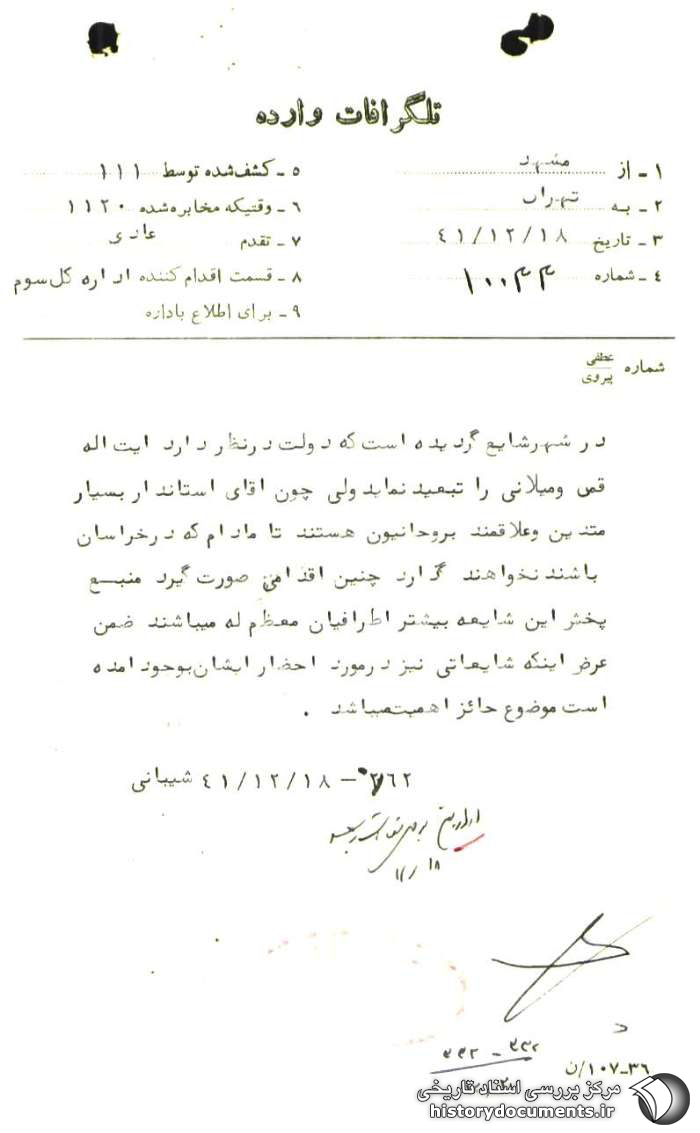 تلگرافات وارده
۱ - از مشهد
۲ - به تهران
۳ - تاریخ ۴۱/۱۲/۱۸
۴ - شماره ۱۰۰۴۴
۵ - کشف شده توسط ۱۱۱
۶ - وقتیکه مخابره شده ۱۱۲۰
۷ - تقدم عادی
۸ - قسمت اقدام کننده اداره کل سوم
۹ - برای اطلاع باداره
شماره عطفی
پیروی
در شهر شایع گردیده است که دولت در نظر دارد ایت اله
قمی ومیلانی را تبعید نماید ولی چون اقای استاندار بسیار
متدین وعلاقمند بروحانیون هستند تا مادام که در خراسان
باشند نخواهند گذارد چنین اقدامی صورت گیرد منبع
پخش این شایعه بیشتر اطرافیان معظم له میباشند ضمن
عرض اینکه شایعاتی نیز در مورد احضار ایشان بوجود امده
است موضوع حائز اهمیت میباشد .
۲۶۲ – ۴۱/۱۲/۱۸ شیبانی
۱۸/۱۲
۳۳۲ - ۳۳۲
۳۶-۱۰۷/ن
مرکز بررسی اسناد تاریخی
historydocuments.ir